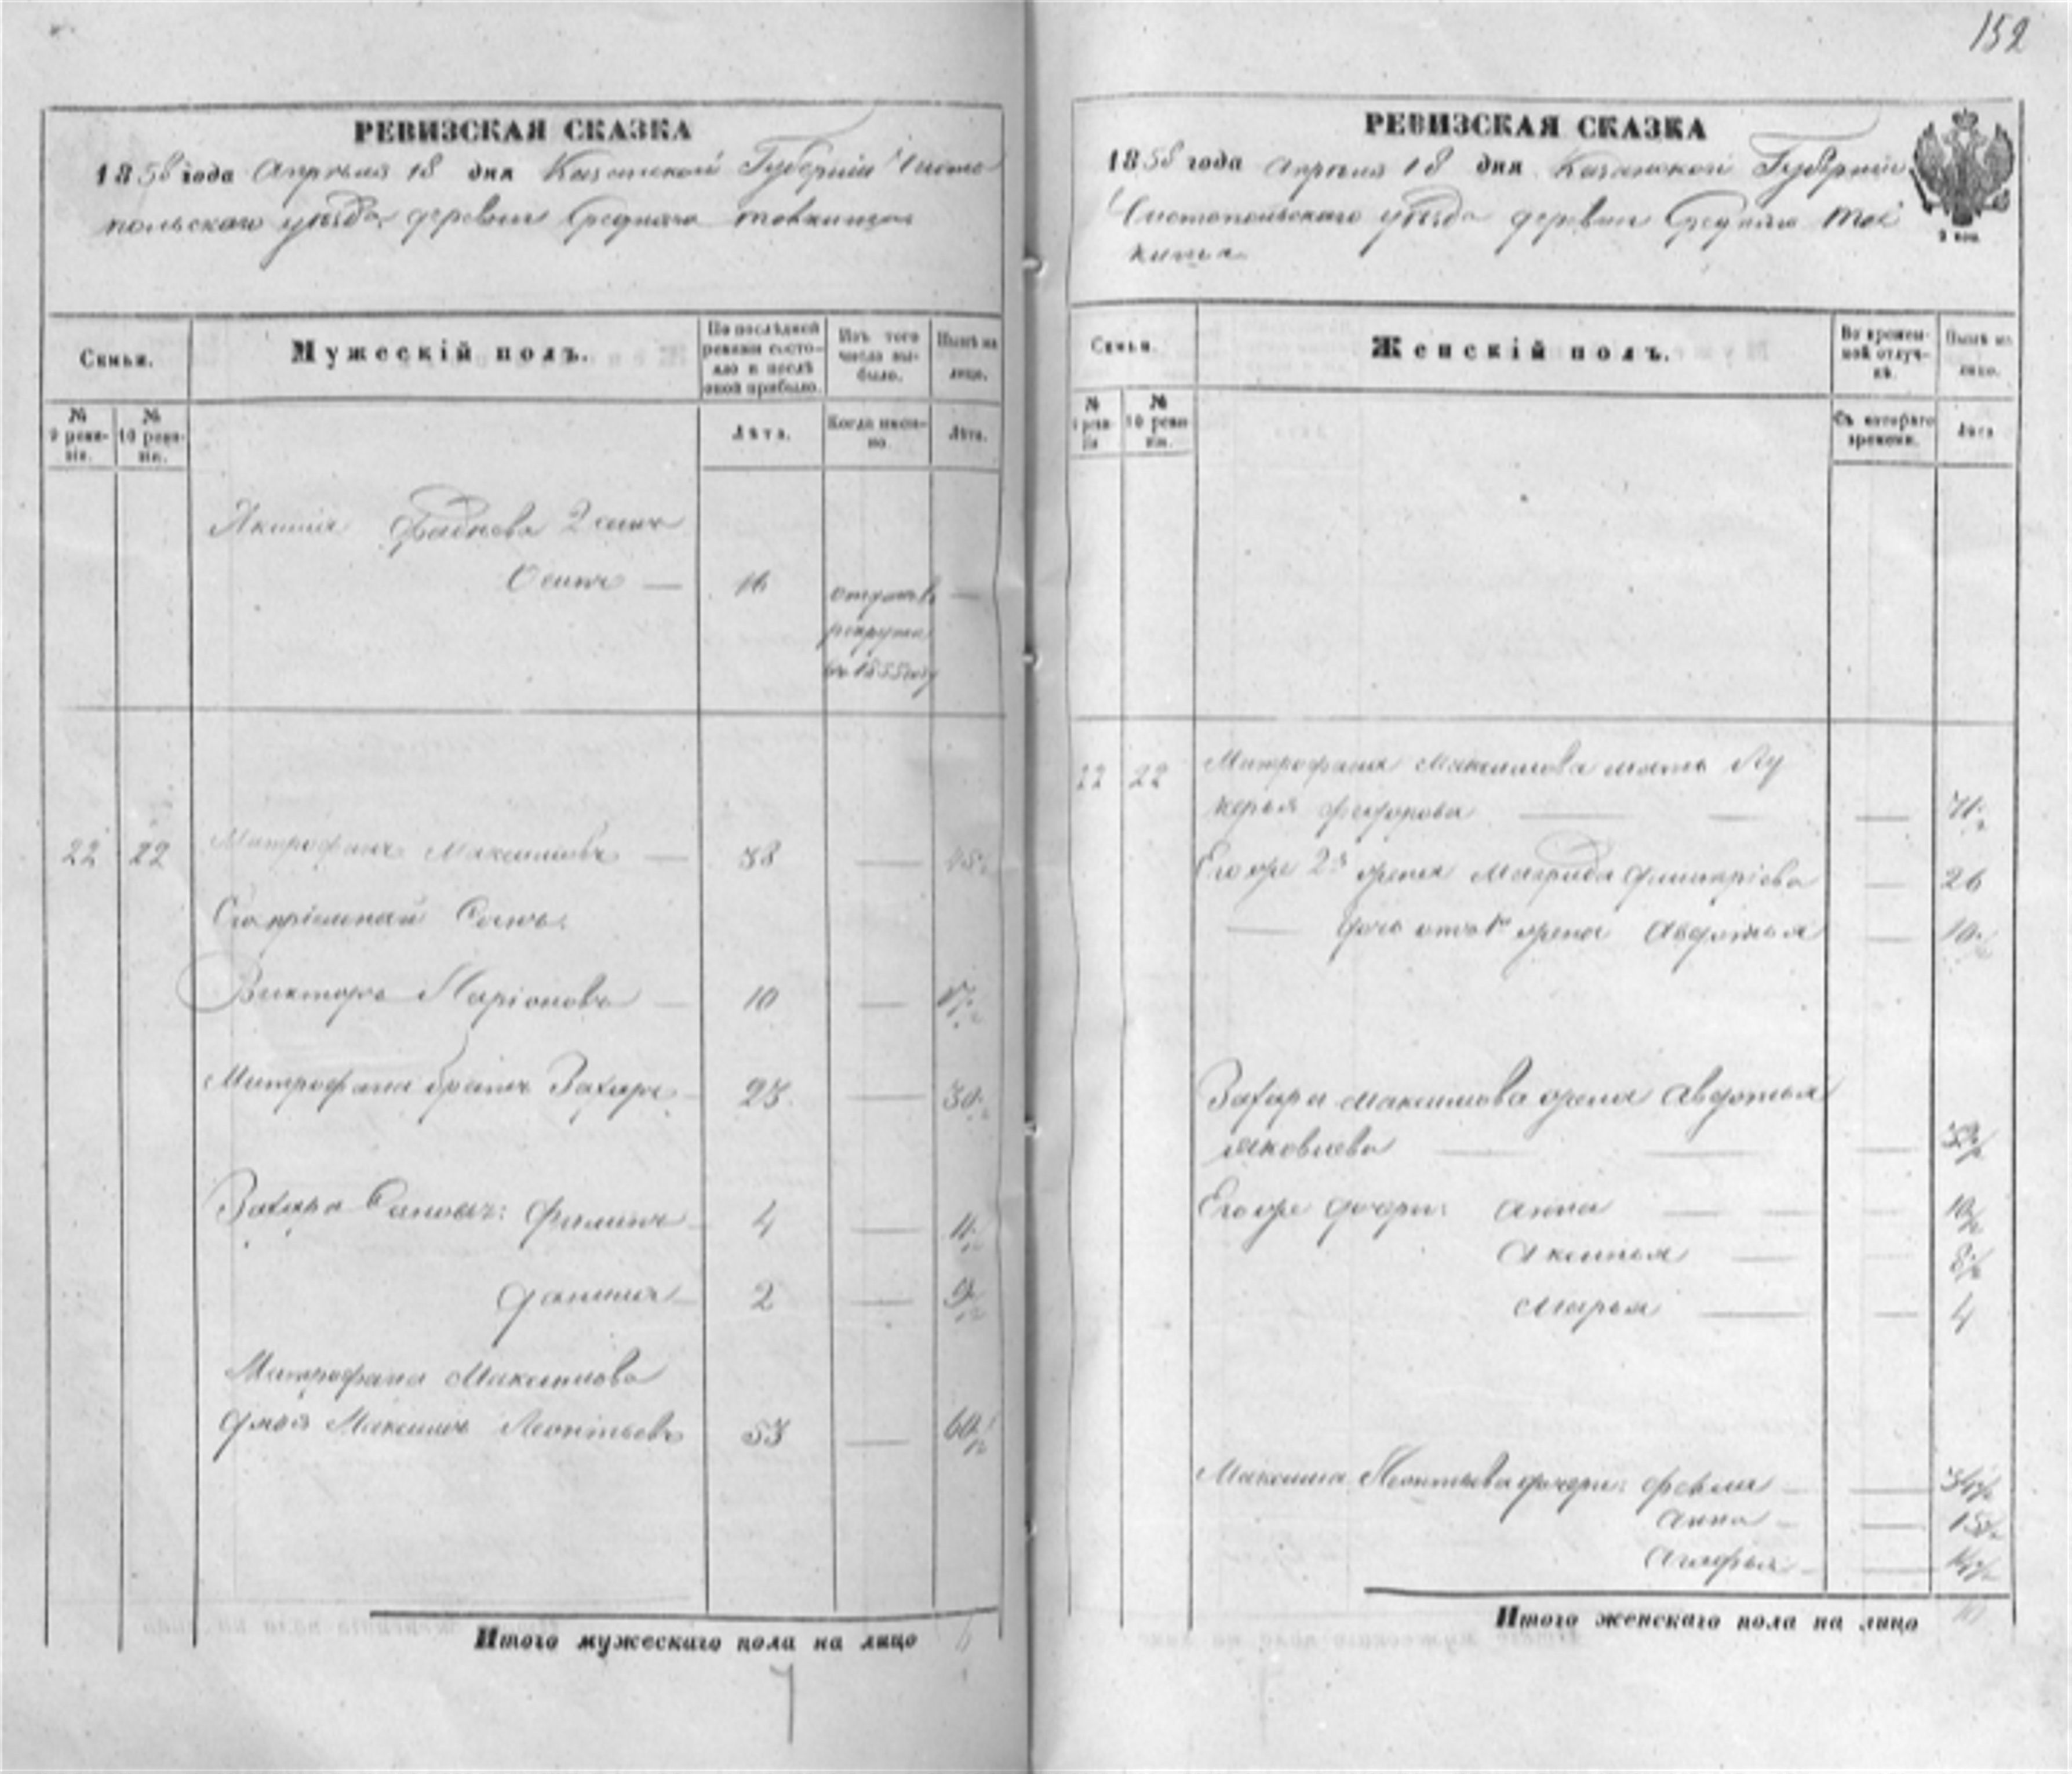 152
РЕВИЗСКАЯ СКАЗКА
1858 года Апреля 18 дня Казанской Губерніи Чисто
польскаго уѣзда деревни Средняго Толкиша
Семьи.
Мужескій полъ.
По послѣдней ревизіи состояло и послѣ оной прибыло.
Изъ того числа выбыло.
Нынѣ на лицо.
№ 9 ревизіи.
№ 10 ревизіи.
Лѣта.
Когда именно.
Лѣта.
2 сынъ
Осипъ — 16
рекруты
въ 1855 году
22 22 Митрофанъ Максимовъ — 38
Его пріемный Сынъ:
Викторъ Ларіоновъ — 10 — 17
Митрофана братъ Захаръ — 23 — 30
Захара Сыновья: Филипъ — 4 — 11
Данила — 2 — 9
Митрофана Максимова
дядя Максимъ Леонтьевъ 53 — 60
Итого мужескаго пола на лицо 6
7
РЕВИЗСКАЯ СКАЗКА
1858 года Апреля 18 дня Казанской Губерніи
Чистопольскаго уѣзда деревни Средняго Тол
киша
2 коп.
Семьи.
Женскій полъ.
Во временной отлучкѣ.
Нынѣ на лицо.
№ 9 ревизіи
№ 10 ревизіи.
Съ котораго времени.
Лѣта
22 22 Митрофана Максимова мать Лу
керья Федорова — 71
Его же 2я жена — 26
— дочь отъ 1й жены Авдотья — 10
Захара Максимова жена Авдотья
Яковлева
Его же дочери: Анна — 10
Аксинья — 8
Марья — 4
Максима Леонтьева дочери: Фекла —
Анна — 15
Агафья —
Итого женскаго пола на лицо 10